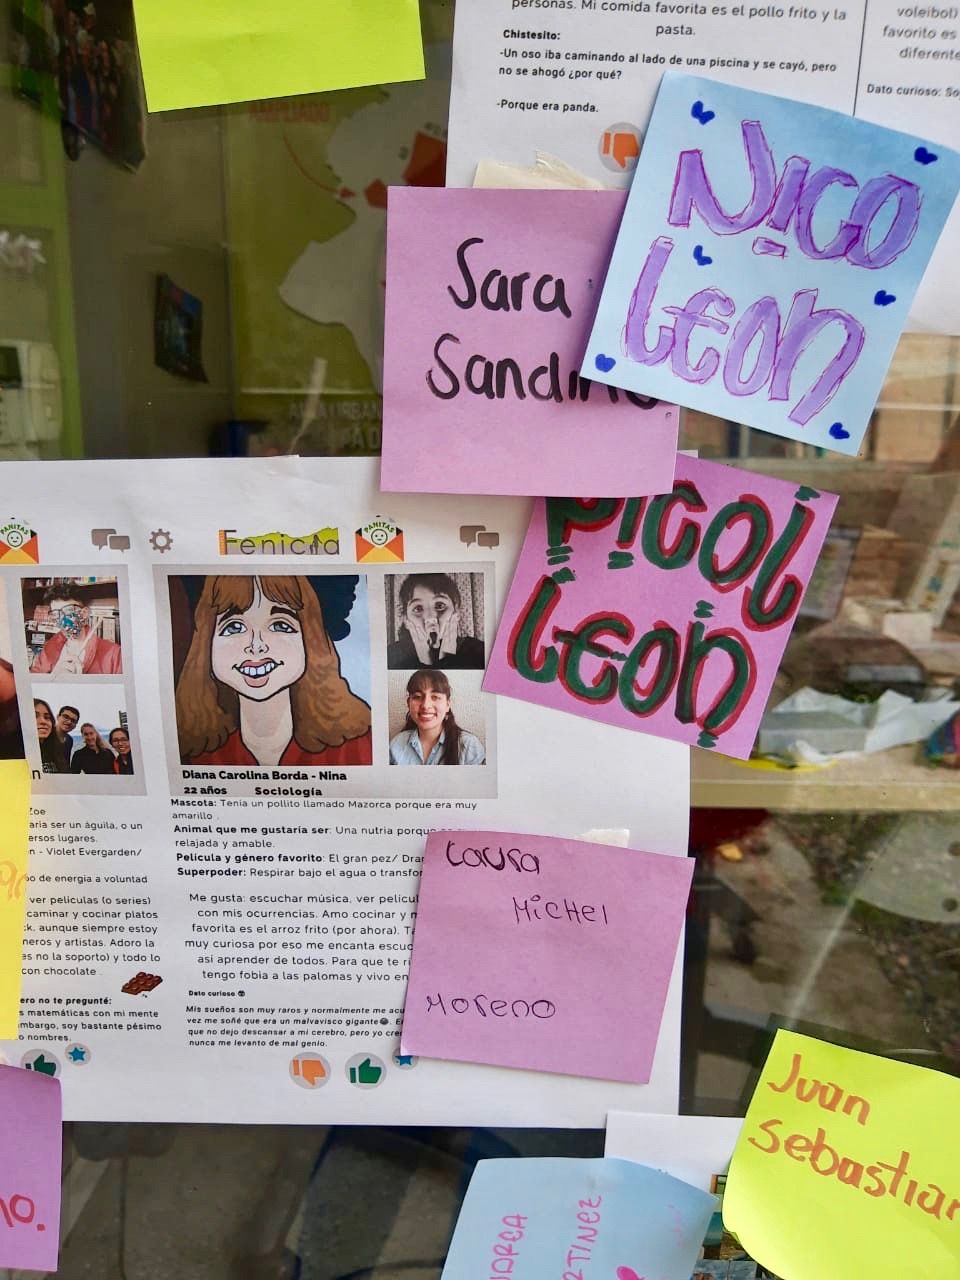 personas. Mi comida favorita es el pollo frito y la
pasta.
Chistesito:
-Un oso iba caminando al lado de una piscina y se cayó, pero
no se ahogó ¿por qué?
-Porque era panda.
voleibol)
favorito es
diferente
Dato curioso: So
AMPLIADO
Nico
Leon
Sara
Sandino
Picol
Leon
PANITAS
Fenicia
PANITAS
Diana Carolina Borda - Nina
22 años Sociología
Mascota: Tenia un pollito llamado Mazorca porque era muy
amarillo .
Animal que me gustaría ser: Una nutria porque
relajada y amable.
Película y género favorito: El gran pez/ Dra
Superpoder: Respirar bajo el agua o transfo
Me gusta: escuchar música, ver pelícu
con mis ocurrencias. Amo cocinar y
favorita es el arroz frito (por ahora). T
muy curiosa por eso me encanta escuc
así aprender de todos. Para que te ri
tengo fobia a las palomas y vivo en
Dato curioso
Mis sueños son muy raros y normalmente me acu
vez me soñé que era un malvavisco gigante
que no dejo descansar a mi cerebro, pero yo cre
nunca me levanto de mal genio.
Zoe
aria ser un àguila, o un
ersos lugares.
n - Violet Evergarden/
o de energia a voluntad
ver películas (o series)
caminar y cocinar platos
ck. aunque siempre estoy
neros y artistas. Adoro la
es no la soporto) y todo lo
con chocolate .
ero no te pregunté:
s matemáticas con mi mente
mbargo, soy bastante pésimo
o nombres.
Laura
Michel
Moreno
Juan
Sebastian
DREA
RTINEZ
no.